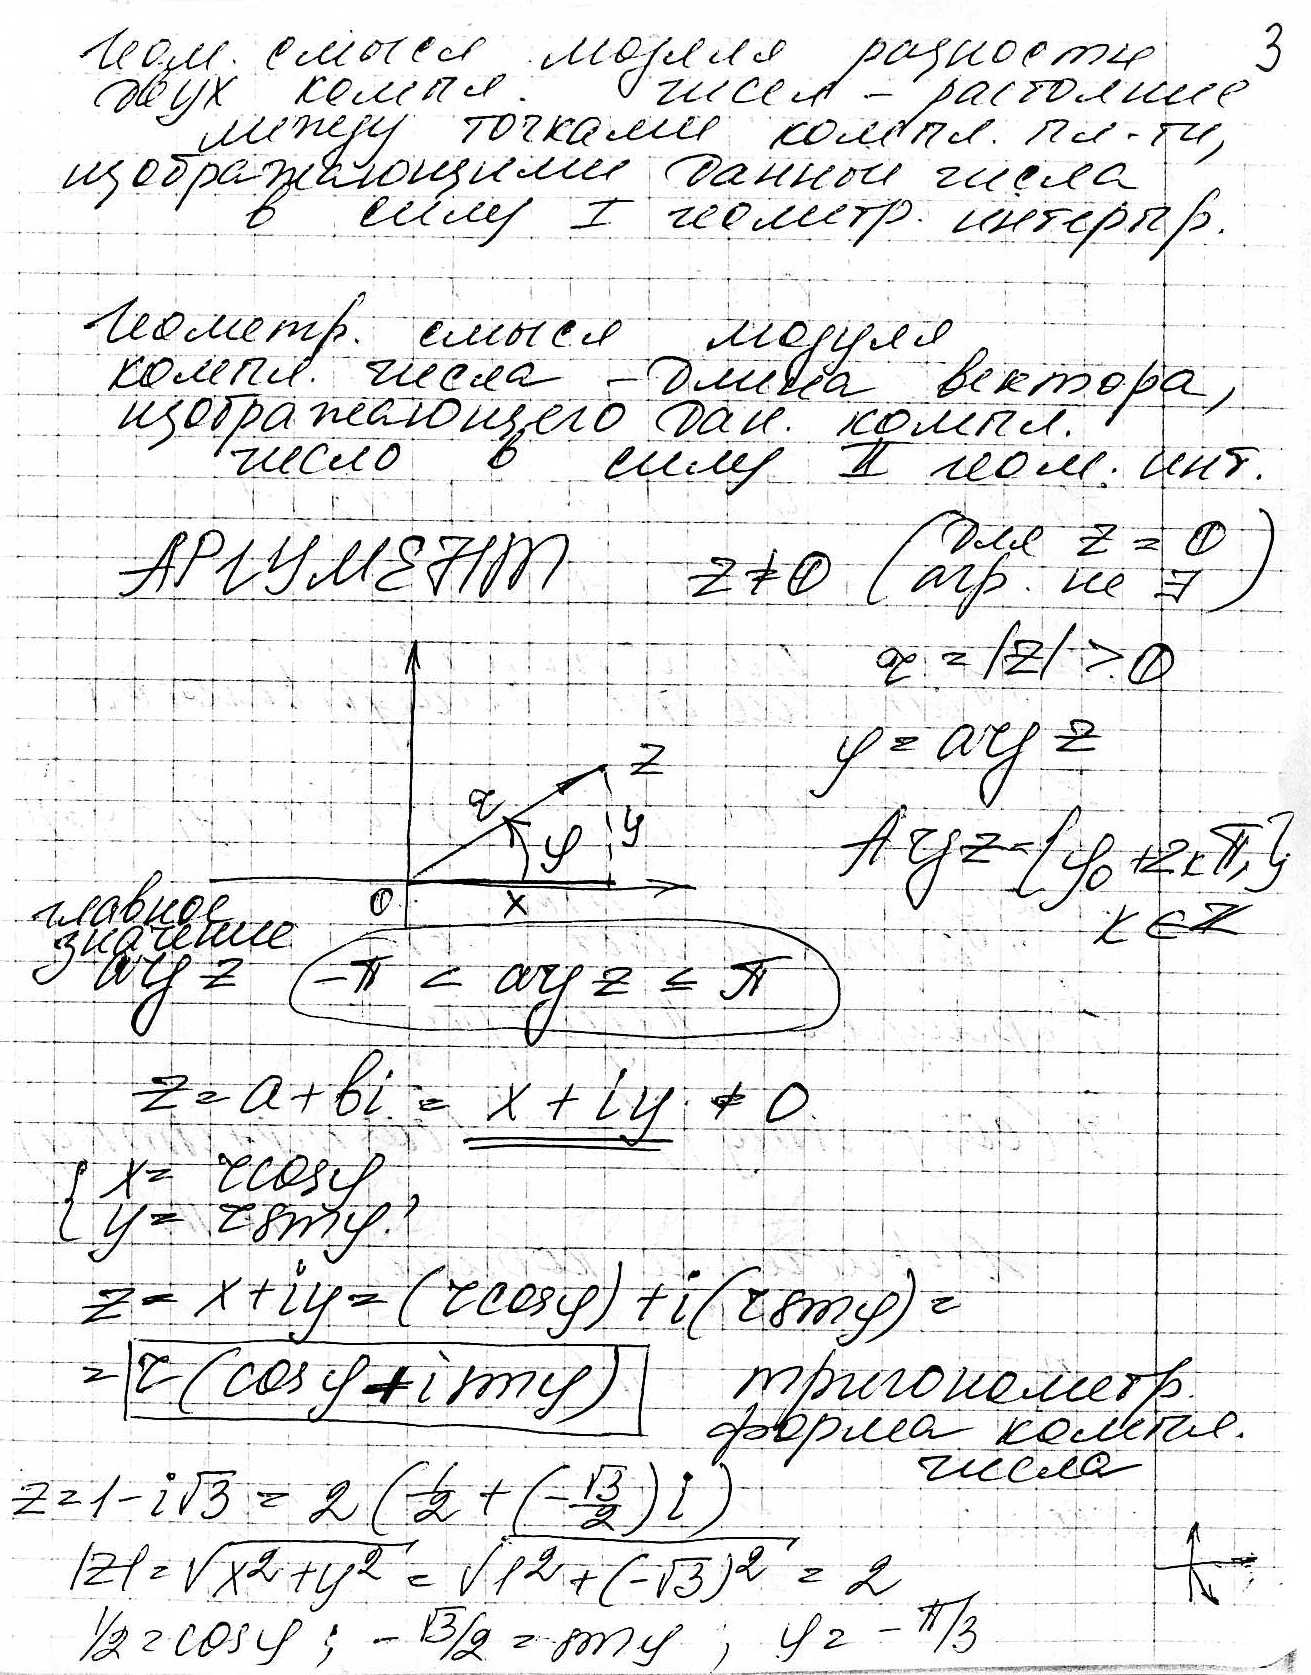 3
Геом. смысл модуля разности
двух компл. чисел – растояние
между точками компл. пл-ти,
изображающими данные числа
в силу I геометр. интерпр.
Геометр. смысл модуля
компл. числа – длина вектора,
изображающего дан. компл.
число в силу II геом. инт.
АРГУМЕНТ z ≠ 0 (для z = 0
арг. не ∃)
r = |z| > 0
φ = arg z
z
r
φ
y
Arg z = {φ₀ + 2kπ,}
k ∈ ℤ
0
x
главное
значение
arg z
-π < arg z ≤ π
z = a + bi = x + iy ≠ 0
{ x = r cos φ
y = r sin φ
z = x + iy = (r cos φ) + i(r sin φ) =
= r (cos φ + i sin φ) тригонометр.
форма компл.
числа
z = 1 - i√3 = 2 (1/2 + (-√3/2) i)
|z| = √x² + y² = √1² + (-√3)² = 2
1/2 = cos φ ; -√3/2 = sin φ ; φ = -π/3